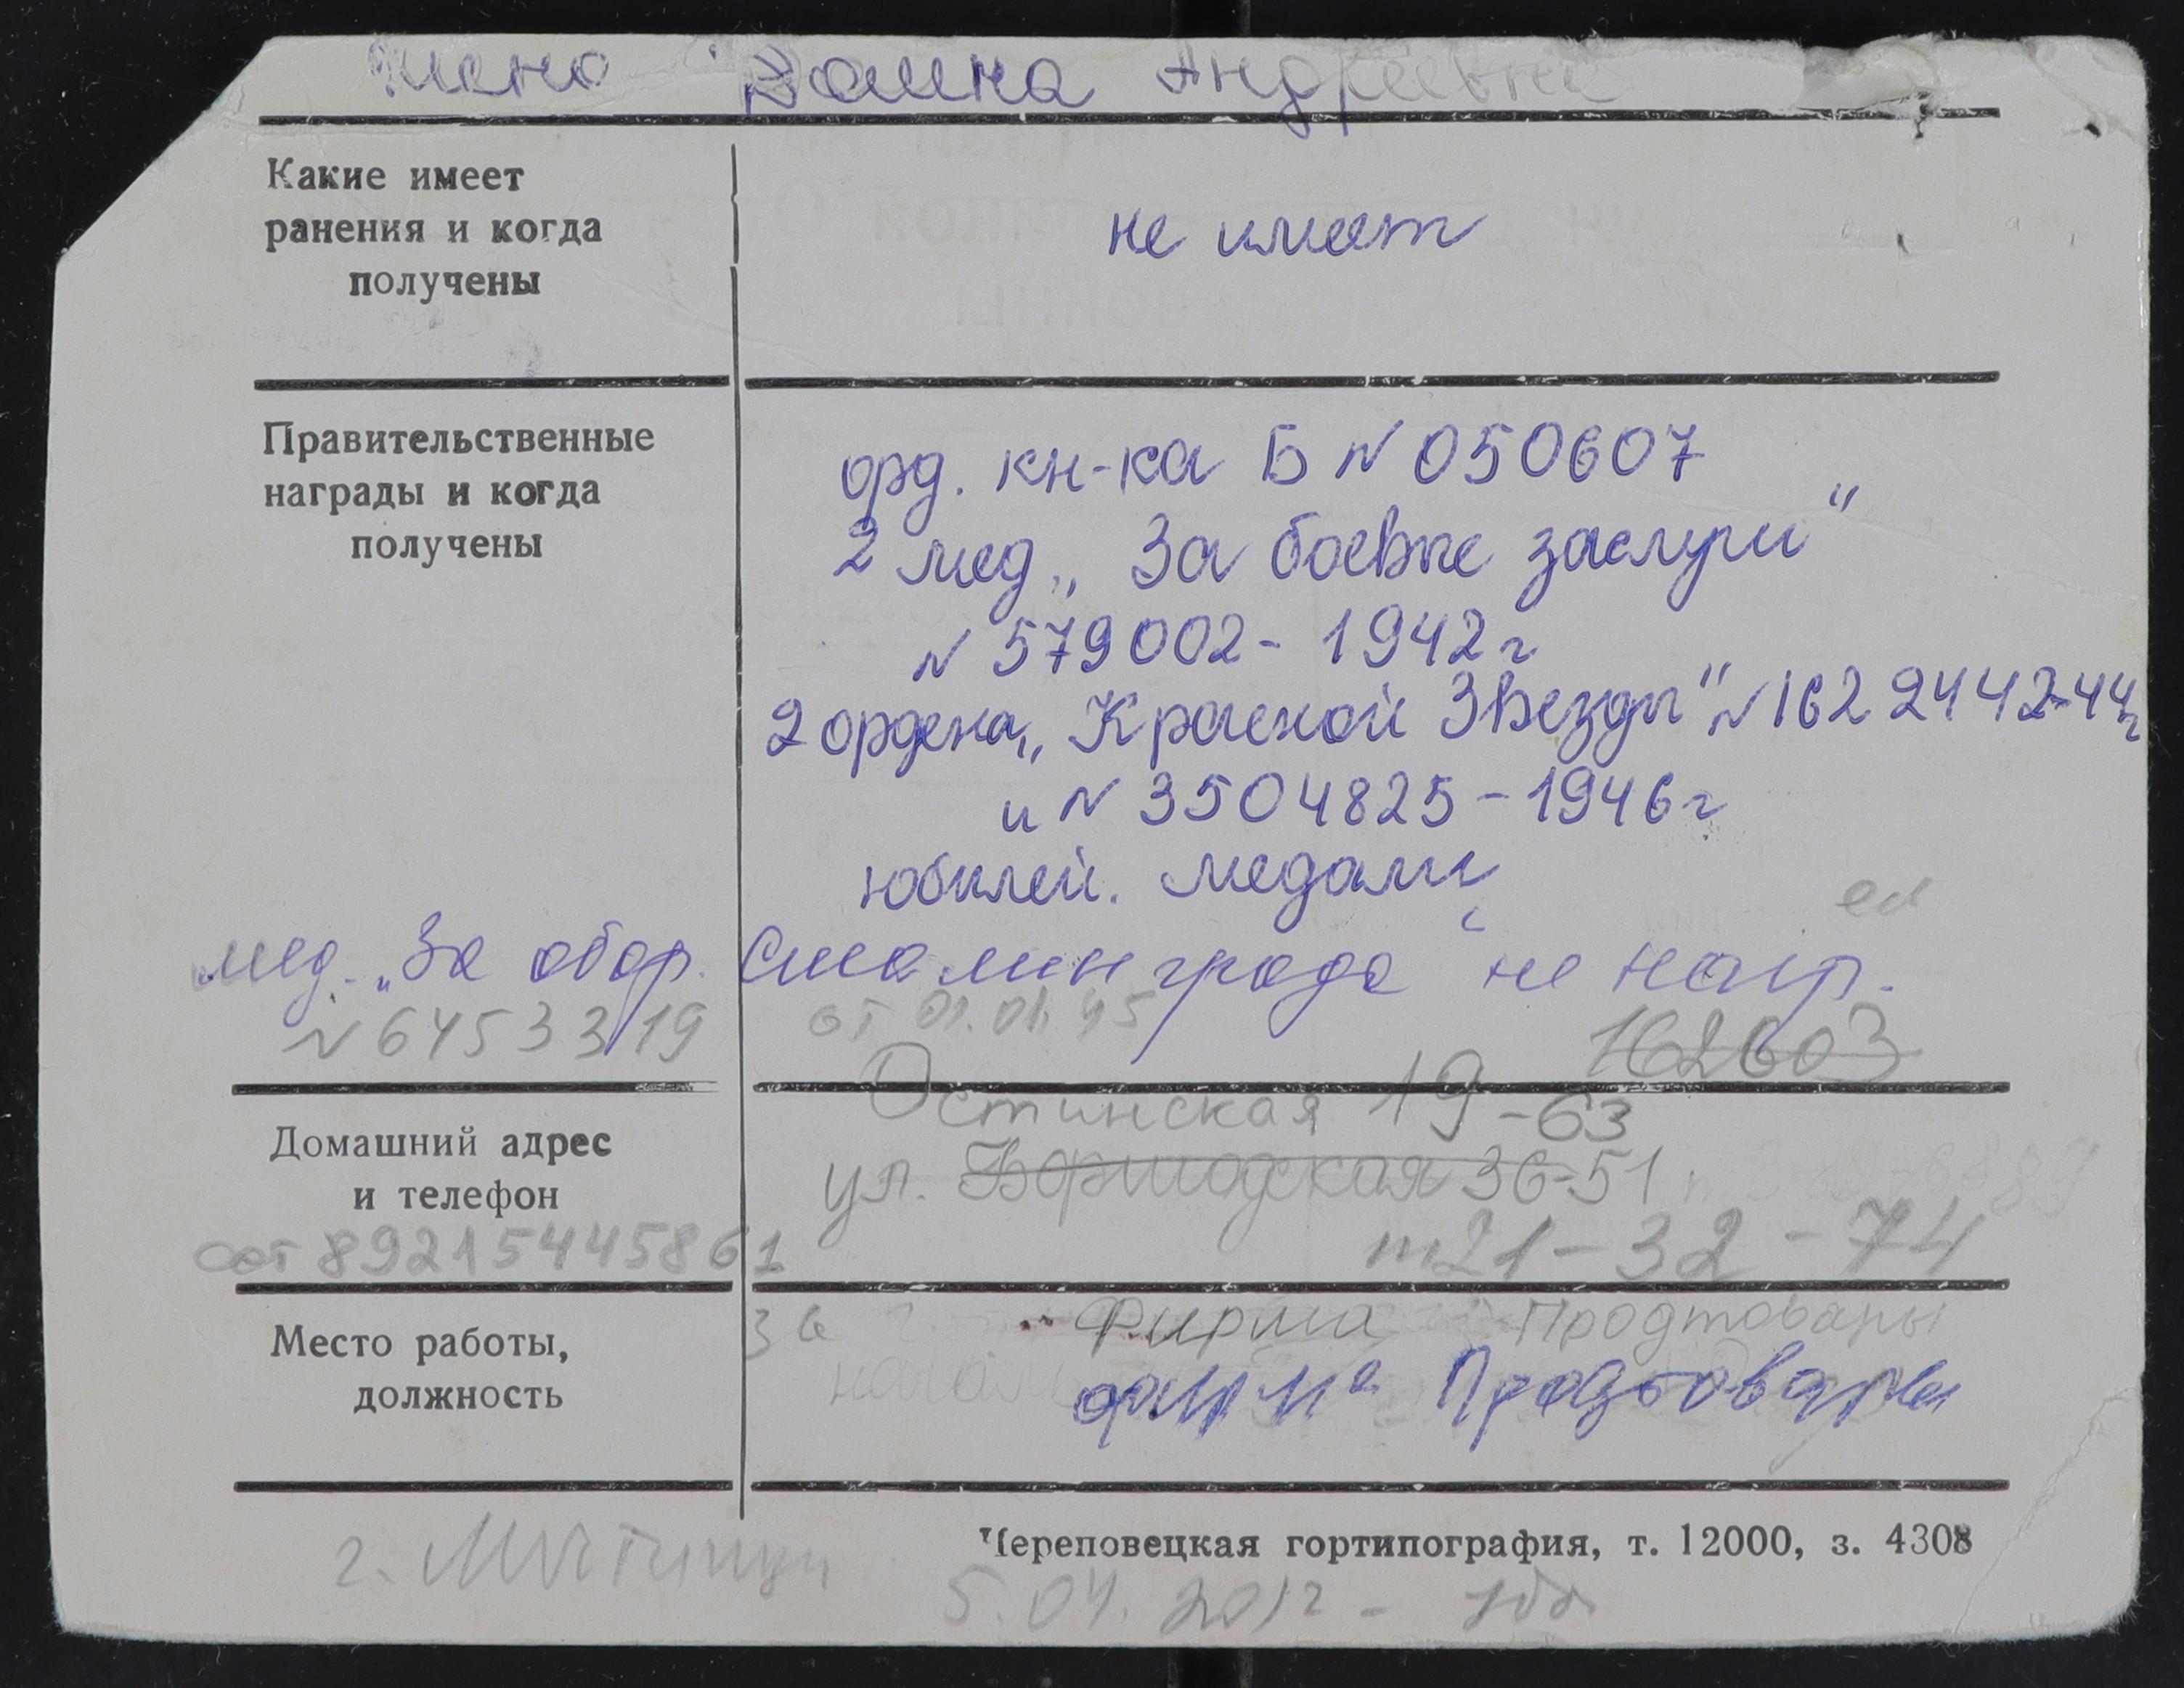 Жена Заина Андреевна
Какие имеет
ранения и когда
получены
не имеет
Правительственные
награды и когда
получены
орд. кн-ка Б № 050607
2 мед. „За боевые заслуги“
№ 579002 - 1942 г
2 ордена „Красной Звезды“ № 1622442-44г
и № 3504825 - 1946 г
юбилей. медали
мед. „За обор. Сталинграда“ не нагр.
№ 64533 19 от 01.01.95
162603
Остинская 19-63
Домашний адрес
и телефон
ул. Боршодская 36-51
сот 89215445861
т 21-32-74
Место работы,
должность
Фирма Продтовары
фирма Продтовары
г. Мытищи
Череповецкая гортипография, т. 12000, з. 4308
5.04.2012 -